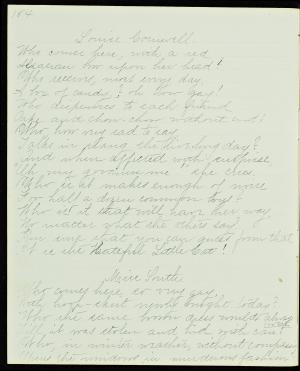 164
Louise Cornwell
Who comes here, with a red
bow upon her head!
Who receives, most every day,
A box of candy? oh how gay!
Who dispenses to each friend
Cake and chow-chow without end!
Who, how very sad to say,
the livelong day?
And when affected with surprise,
Oh, my goodness me," she cries.
Who is it makes enough of noise
For half a dozen common boys?
Who is it that will have her way,
No matter what the others say,
I'm sure that you can guess from that
It is the Hateful Little Cat!
Smith
Who comes here so very gay,
With hope-chest newly bought today?
Who the same brown dress would always
it was stolen and hid with care?
Who, in winter weather, without compassion
the windows in murderous fashion?